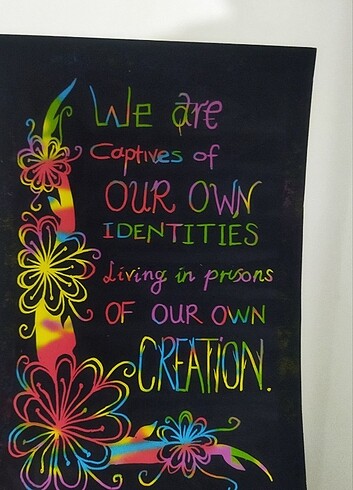 We are
Captives of
OUR OWN
IDENTITIES
Living in prisons
OF OUR OWN
CREATION.